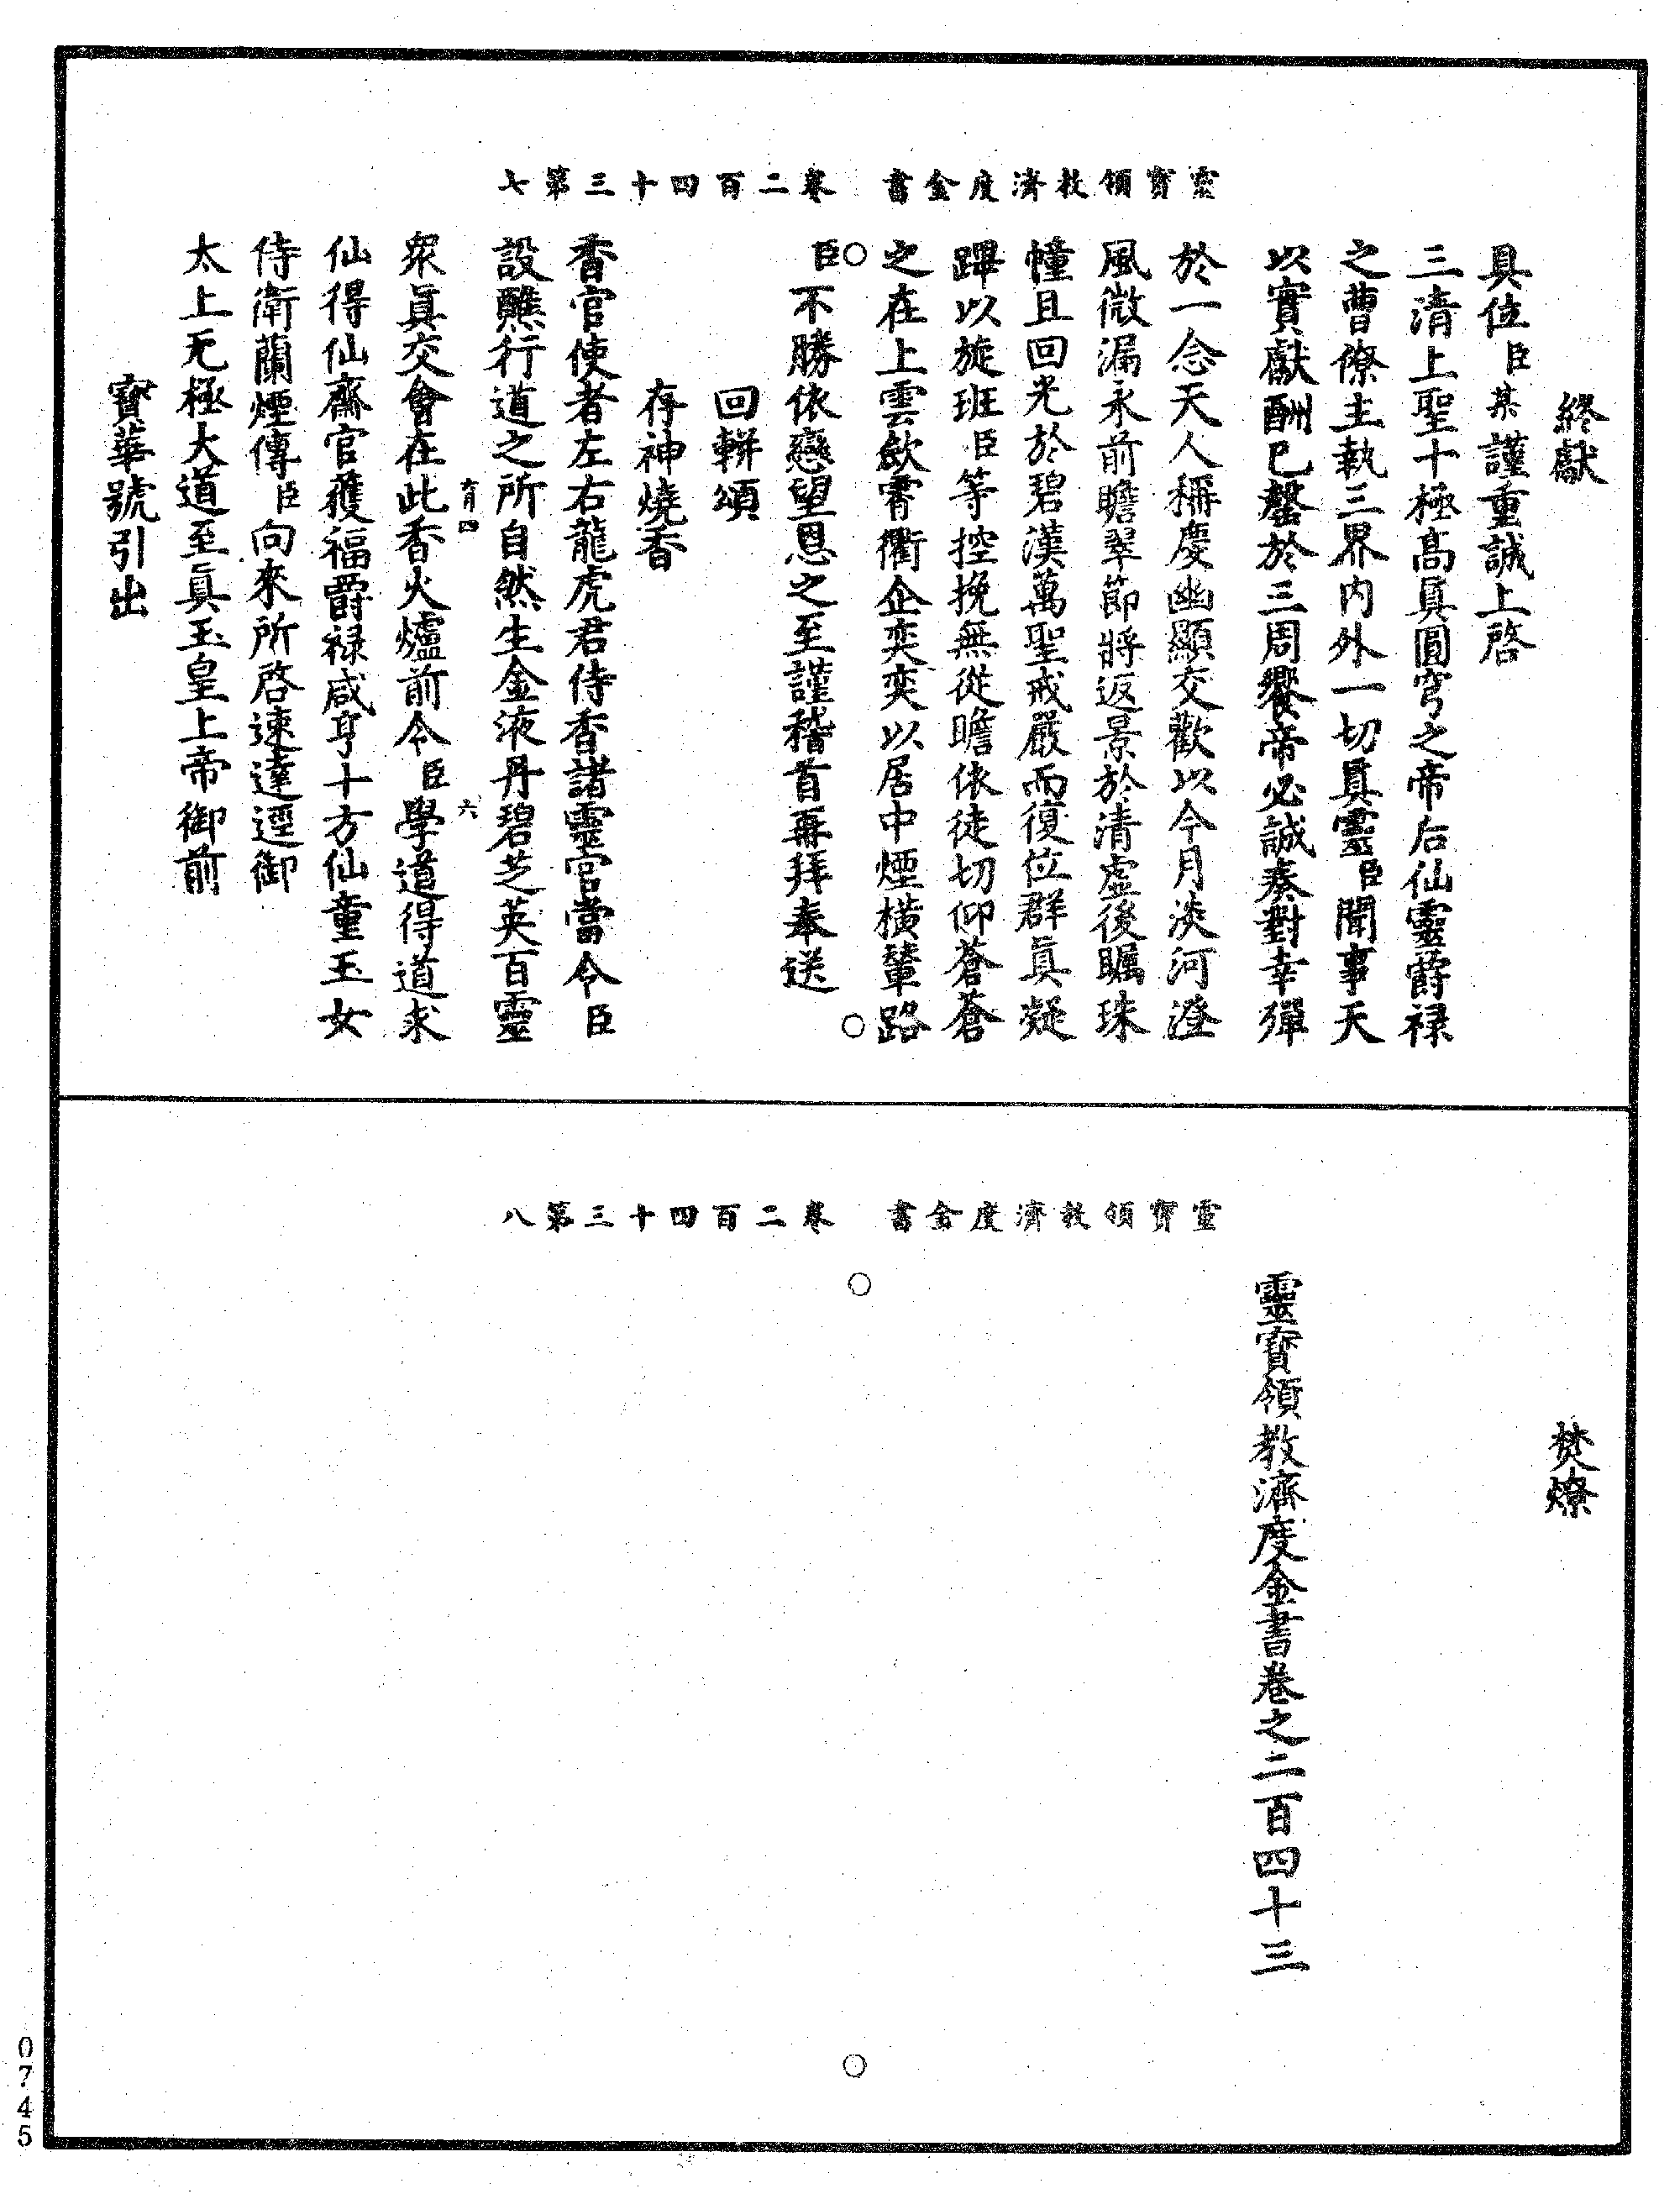 靈寶領教濟度金書　卷二百四十三第七
終獻
具位臣某謹重誠上啓
三清上聖十極高真圓穹之帝后仙靈爵祿
之曹僚主執三界内外一切真靈臣聞事天
以實獻酬已罄於三周饗帝必誠奏對幸殫
於一念天人稱慶幽顯交歡以今月淡河澄
風微漏永前瞻翠節將返景於清虛後矚珠
幢且回光於碧漢萬聖戒嚴而復位群真凝
蹕以旋班臣等控挽無從瞻依徒切仰蒼蒼
之在上雲斂霄衢企奕奕以居中煙橫輦路
臣不勝依戀望恩之至謹稽首再拜奉送
回軿頌
存神燒香
香官使者左右龍虎君侍香諸靈官當令臣
設醮行道之所自然生金液丹碧芝英百靈
育四　六
衆真交會在此香火爐前令臣學道得道求
仙得仙齋官獲福爵祿咸亨十方仙童玉女
侍衛蘭煙傳臣向來所啓速達逕御
太上无極大道至真玉皇上帝御前
寶華號引出
靈寶領教濟度金書　卷二百四十三第八
焚燎
靈寶領教濟度金書卷之二百四十三
0745